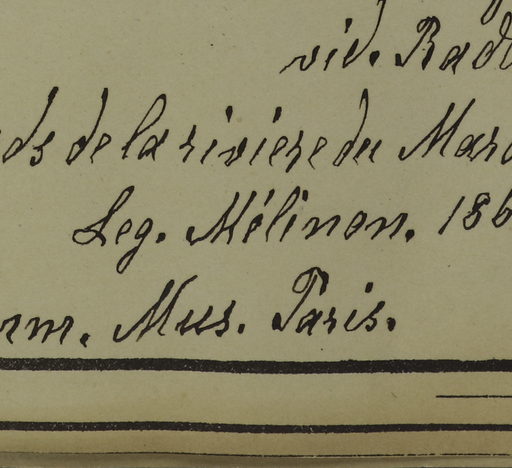 vid. Radl
ds de la riviere du Maro
Leg. Mélinon. 186
mm. Mus. Paris.